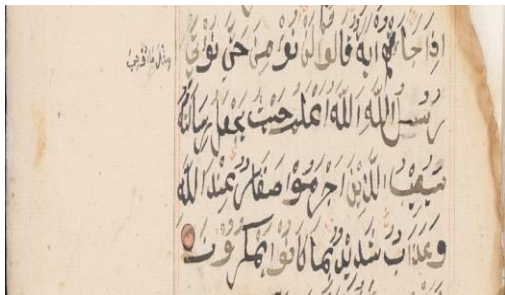 اِذَا جَاءَتْهُمْ اٰيَةٌ قَالُوا لَنْ نُؤْمِنَ حَتّٰى نُؤْتٰى
مِثْلَ مَا اُوتِيَ
رُسُلُ اللّٰهِ اَللّٰهُ اَعْلَمُ حَيْثُ يَجْعَلُ رِسَالَتَهُ
سَيُصِيبُ الَّذِينَ اَجْرَمُوا صَغَارٌ عِنْدَ اللّٰهِ
وَعَذَابٌ شَدِيدٌ بِمَا كَانُوا يَمْكُرُونَ